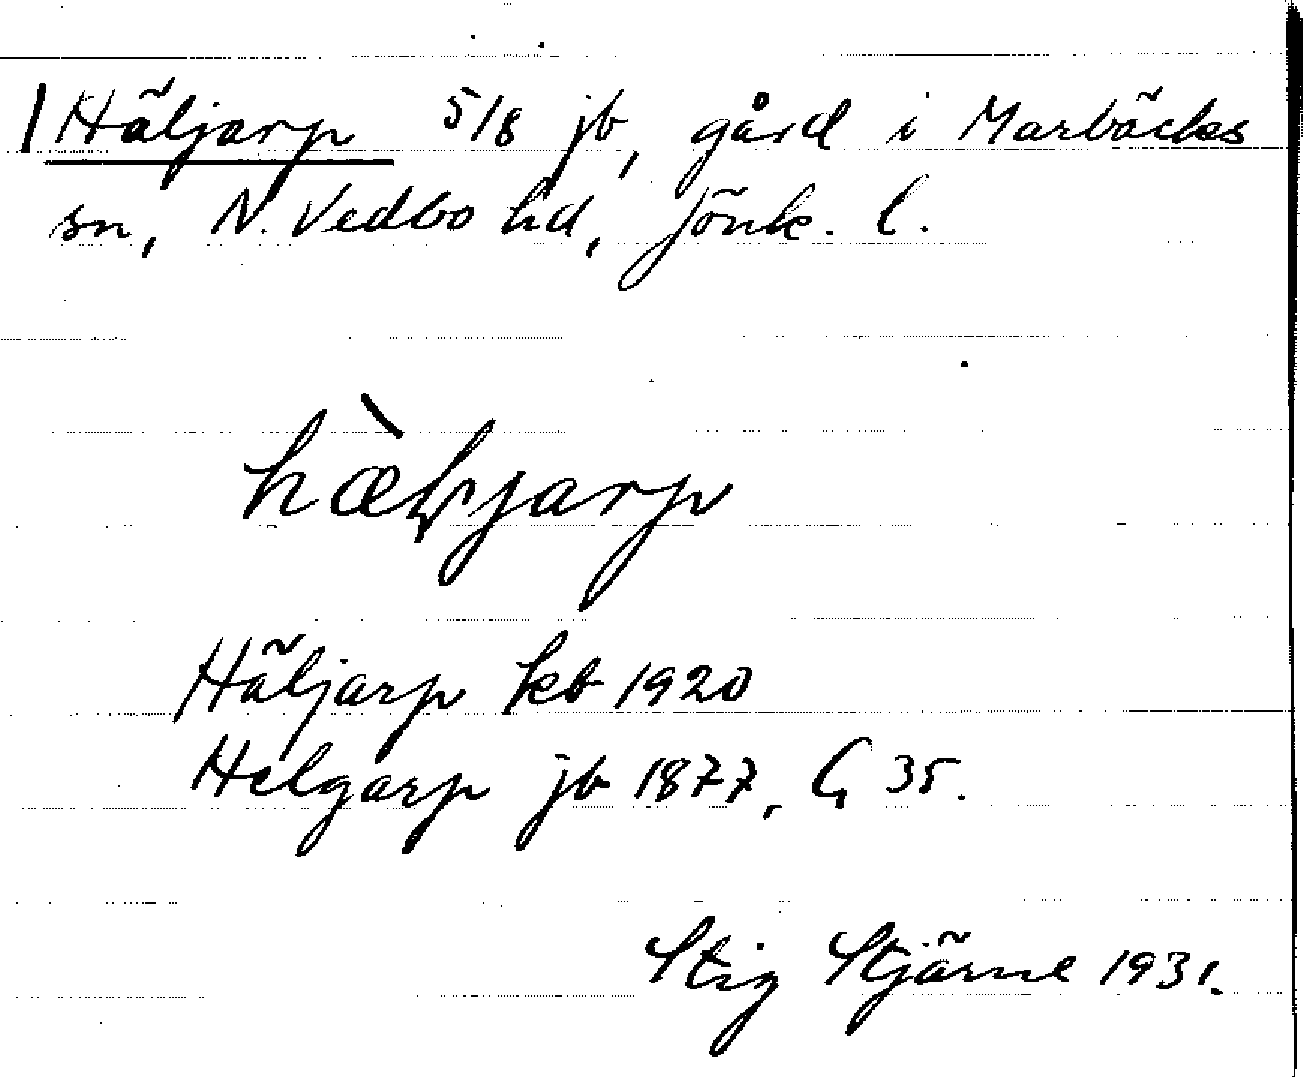 Häljarp 5/8 jb, gård i Marbäcks
sn, N. Vedbo hd, Jönk. l.
hæ̀ljarp
Häljarp kb 1920
Helgarp jb 1877, G 35.
Stig Stjärne 1931.